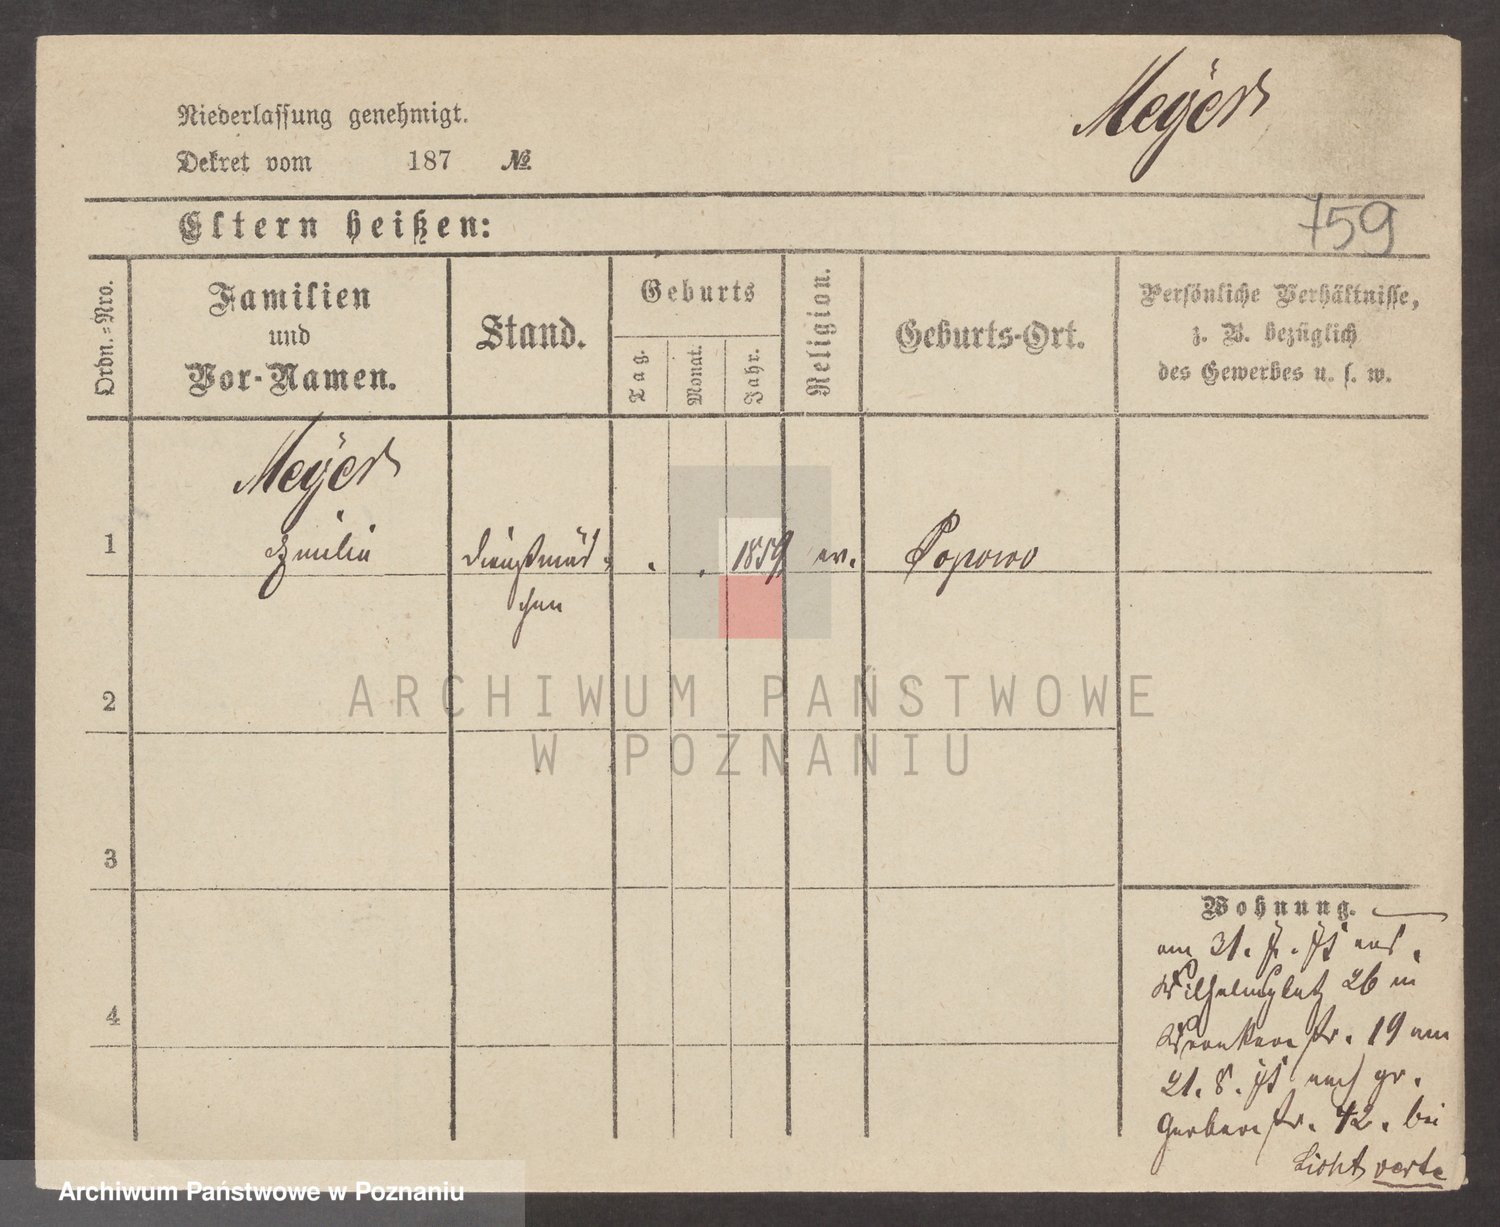 Meyer
Niederlassung genehmigt.
Dekret vom 187 №
759
Eltern heißen:
Ordn.=Nro.
Familien
und
Vor-Namen.
Stand.
Geburts
Tag.
Monat.
Jahr.
Religion.
Geburts-Ort.
Persönliche Verhältnisse,
z. B. bezüglich
des Gewerbes u. s. w.
Meyer
1 Emilie Dienstmäd= . . 1859 ev. Popowo
chen
2
3
4
Wohnung.
am 31.
Wilhelmsplatz 26 in
Wronkerstr. 19 am
21. 8. nach gr.
Gerberstr. 42. bei
Licht verte
ARCHIWUM PAŃSTWOWE
W POZNANIU
Archiwum Państwowe w Poznaniu